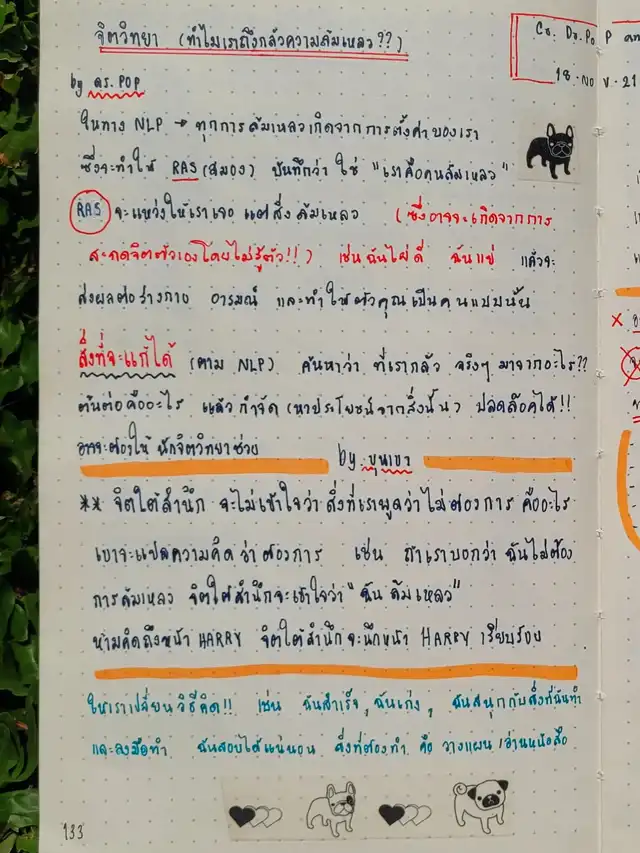 จิตวิทยา (ทำไมเราถึงกลัวความล้มเหลว??)
by ดร.POP
ในทาง NLP → ทุกการล้มเหลวเกิดจากการตั้งค่าของเรา
ซึ่งจะทำให้ RAS (สมอง) บันทึกว่า ใช่ "เราคือคนล้มเหลว"
RAS จะแหว่งให้เราเจอ แต่สิ่งล้มเหลว (ซึ่งอาจจะเกิดจากการ
สะกดจิตตัวเองโดยไม่รู้ตัว!!) เช่นฉันไม่ดี ฉันแย่ แล้วจะ
ส่งผลต่อร่างกาย อารมณ์ และทำให้ตัวคุณเป็นคนแบบนั้น
สิ่งที่จะแก้ได้ (ตาม NLP) ค้นหาว่า ที่เรากลัว จริงๆ มาจากอะไร??
ต้นต่อคืออะไร แล้วกำจัด (หาประโยชน์จากสิ่งนั้น) ปลดล๊อคได้!!
อาจจะต้องให้ นักจิตวิทยาช่วย
by ขุนเขา
** จิตใต้สำนึก จะไม่เข้าใจว่า สิ่งที่เราพูดว่าไม่ต้องการ คืออะไร
เขาจะแปลความคิดว่าต้องการ เช่น ถ้าเราบอกว่า ฉันไม่ต้อง
การล้มเหลว จิตใต้สำนึกจะเข้าใจว่า "ฉัน ล้มเหลว"
ห้ามคิดถึงหน้า HARRY จิตใต้สำนึกจะนึกหน้า HARRY เรียบร้อย
ให้เราเปลี่ยนวิธีคิด!! เช่น ฉันสำเร็จ, ฉันเก่ง, ฉันสนุกกับสิ่งที่ฉันทำ
และลงมือทำ ฉันสอบได้แน่นอน สิ่งที่ต้องทำ คือ วางแผน/อ่านหนังสือ
133
18-NOV-21